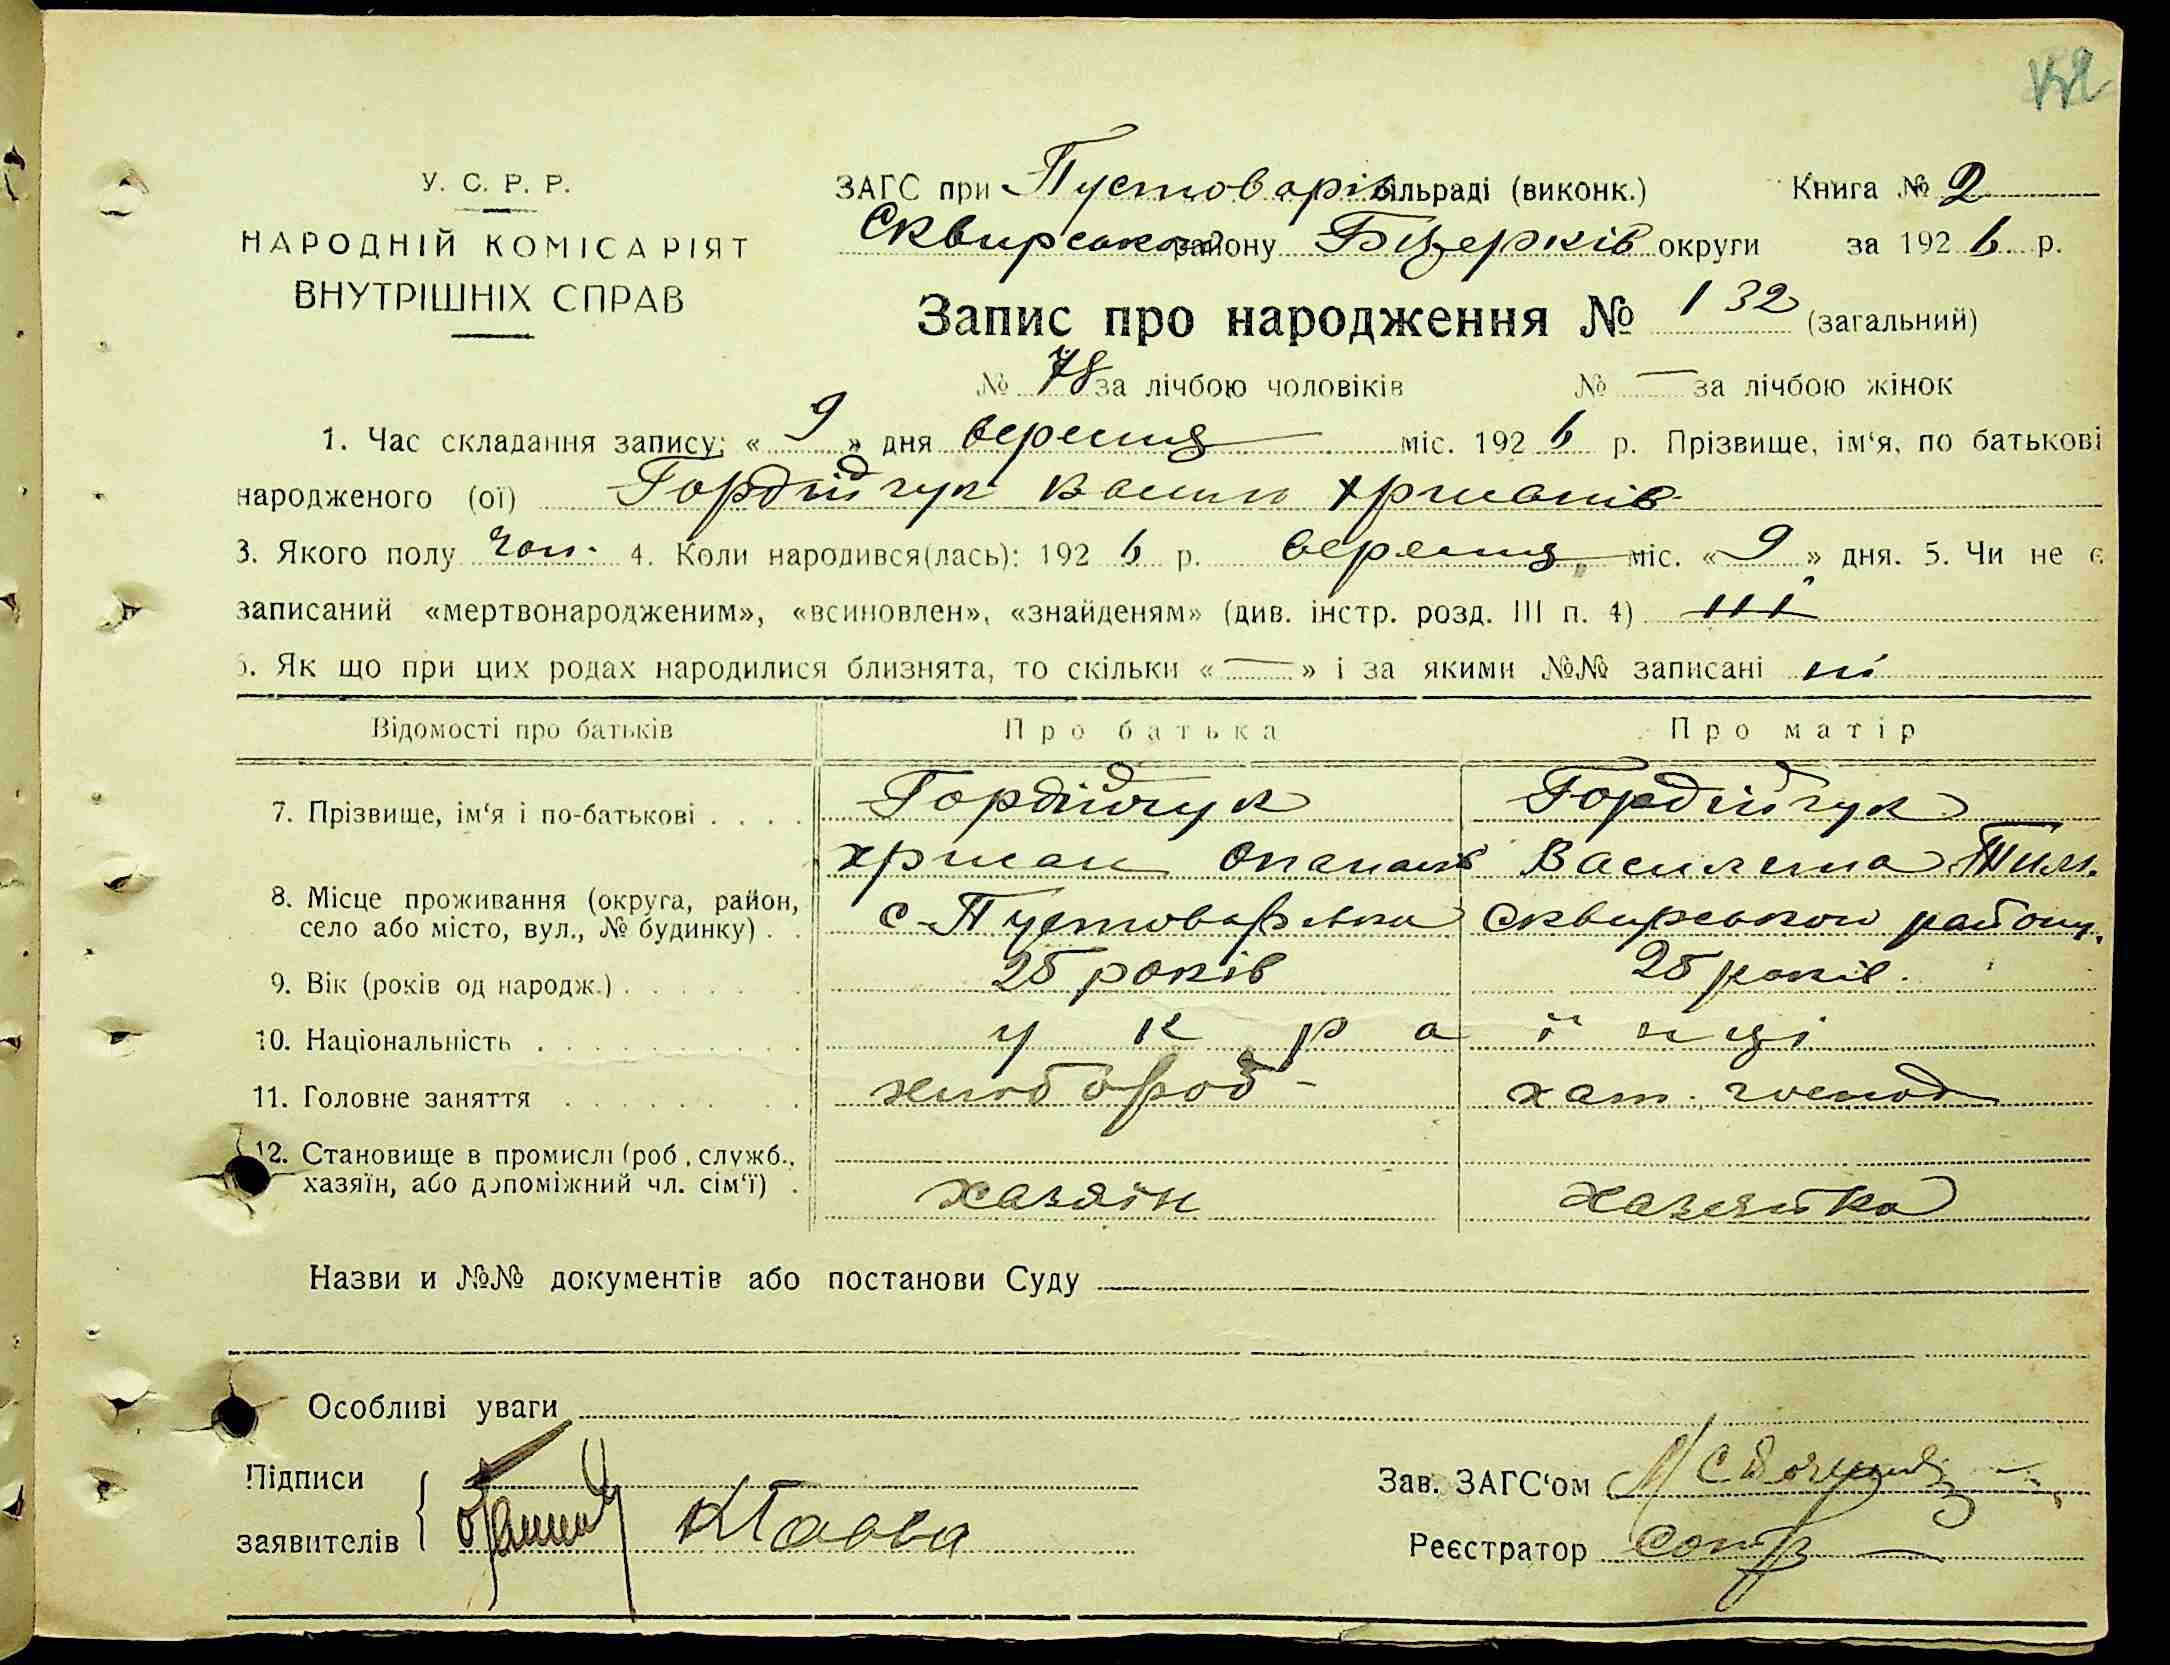 132
У. С. Р. Р.
НАРОДНІЙ КОМІСАРІЯТ
ВНУТРІШНІХ СПРАВ
ЗАГС при Пустоварів сільраді (виконк.) Книга № 2
Сквирського району Б Церків округи за 1926 р.
Запис про народження № 132 (загальний)
№ 78 за лічбою чоловіків № — за лічбою жінок
1. Час складання запису: « 9 » дня вересня міс. 1926 р. Прізвище, ім‘я, по батькові
народженого (ої) Гордійчук Васил Хрисанів
3. Якого полу чол. 4. Коли народився(лась): 1926 р. вересня міс. « 9 » дня. 5. Чи не є
записаний «мертвонародженим», «всиновлен», «знайденям» (див. інстр. розд. III п. 4) ні
6. Як що при цих родах народилися близнята, то скільки « — » і за якими №№ записані ні
Відомості про батьків Про батька Про матір
7. Прізвище, ім‘я і по-батькові . . . . Гордійчук Гордійчук
Хрисан Опанасів Василина Тим.
8. Місце проживання (округа, район,
село або місто, вул., № будинку) . . с. Пустоварівка Сквирського району.
9. Вік (років од народж.) . . . . . 25 років 25 років.
10. Національність . . . . . . . . . українці
11. Головне заняття . . . . . . . хлібород- хат. господ
12. Становище в промислі (роб., служб.,
хазяїн, або допоміжний чл. сім‘ї) . хазяїн хазяйка
Назви и №№ документів або постанови Суду
Особливі уваги
Підписи
заявителів
Зав. ЗАГС‘ом
Реєстратор